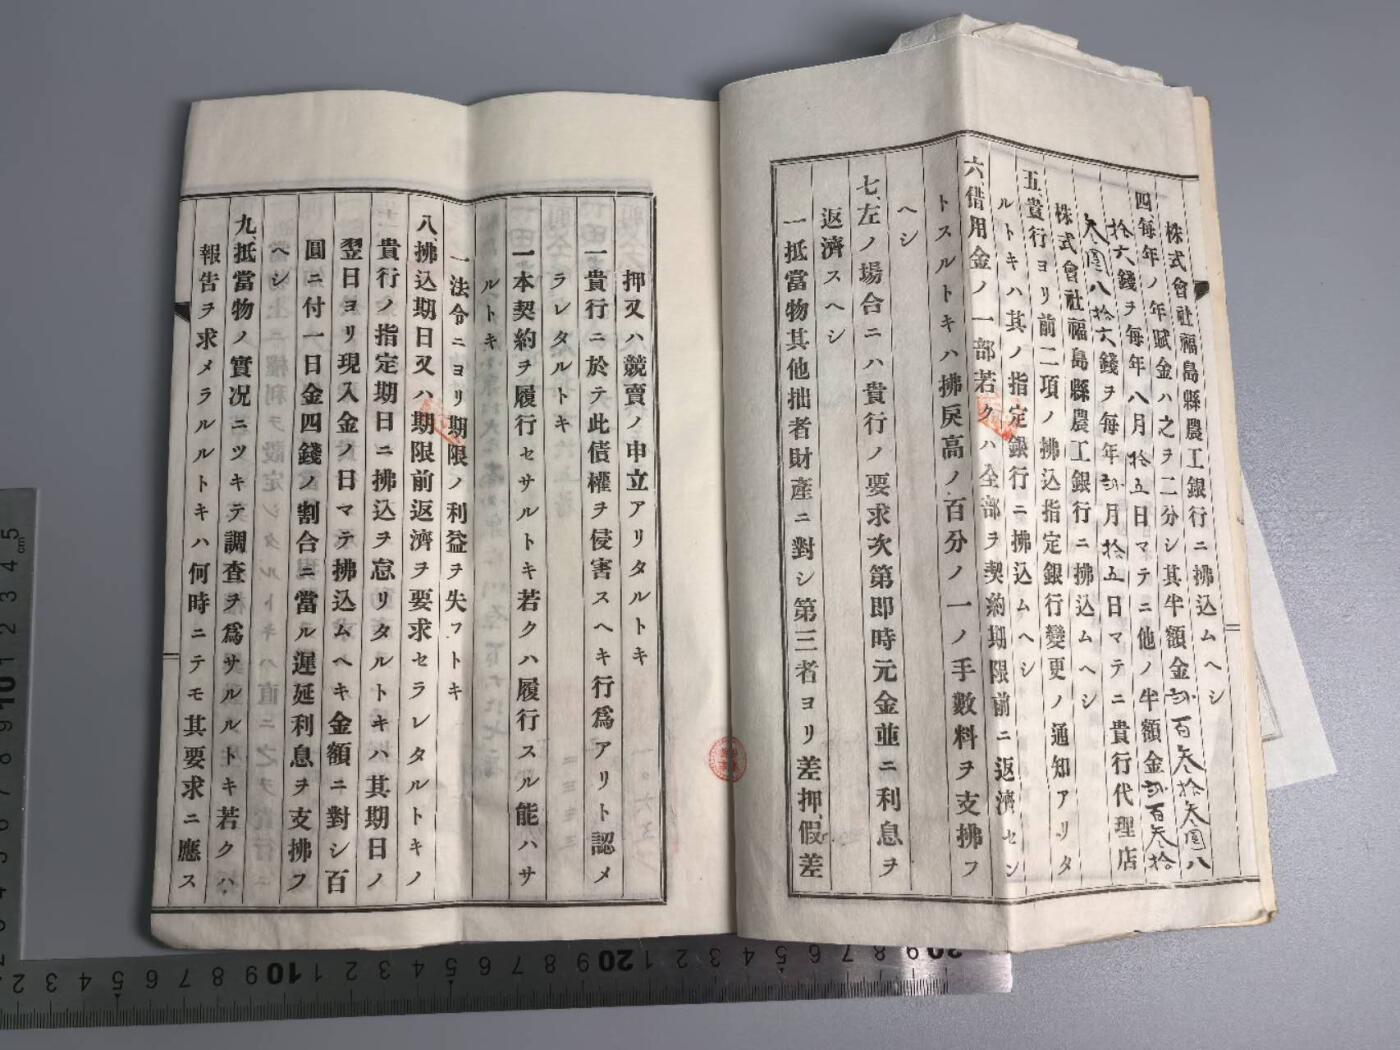 株式會社福島縣農工銀行ニ拂込ムヘシ
四毎年ノ年賦金ハ之ヲ二分シ其半額金弐百叁拾叁圓八
拾六錢ヲ毎年八月拾五日マテニ他ノ半額金弐百叁拾
叁圓八拾六錢ヲ毎年弐月拾五日マテニ貴行代理店
株式會社福島縣農工銀行ニ拂込ムヘシ
五貴行ヨリ前二項ノ拂込指定銀行變更ノ通知アリタ
ルトキハ其ノ指定銀行ニ拂込ムヘシ
六借用金ノ一部若クハ全部ヲ契約期限前ニ返濟セン
トスルトキハ拂戾高ノ百分ノ一ノ手數料ヲ支拂フ
ヘシ
七、左ノ場合ニハ貴行ノ要求次第即時元金並ニ利息ヲ
返濟スヘシ
一抵當物其他拙者財產ニ對シ第三者ヨリ差押假差
押又ハ競賣ノ申立アリタルトキ
一貴行ニ於テ此債權ヲ侵害スヘキ行爲アリト認メ
ラレタルトキ
一本契約ヲ履行セサルトキ若クハ履行スル能ハサ
ルトキ
一法令ニヨリ期限ノ利益ヲ失フトキ
八拂込期日又ハ期限前返濟ヲ要求セラレタルトキノ
貴行ノ指定期日ニ拂込ヲ怠リタルトキハ其期日ノ
翌日ヨリ現入金ノ日マテ拂込ムヘキ金額ニ對シ百
圓ニ付一日金四錢ノ割合ニ當ル遲延利息ヲ支拂フ
ヘシ
九、抵當物ノ實况ニツキテ調査ヲ爲サルルトキ若クハ
報告ヲ求メラルルトキハ何時ニテモ其要求ニ應ス